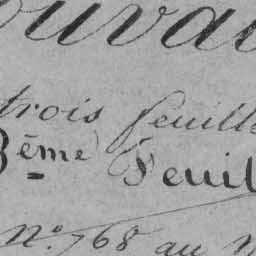 ouva
trois feuille
3ème Feuil
N.º 768 au N